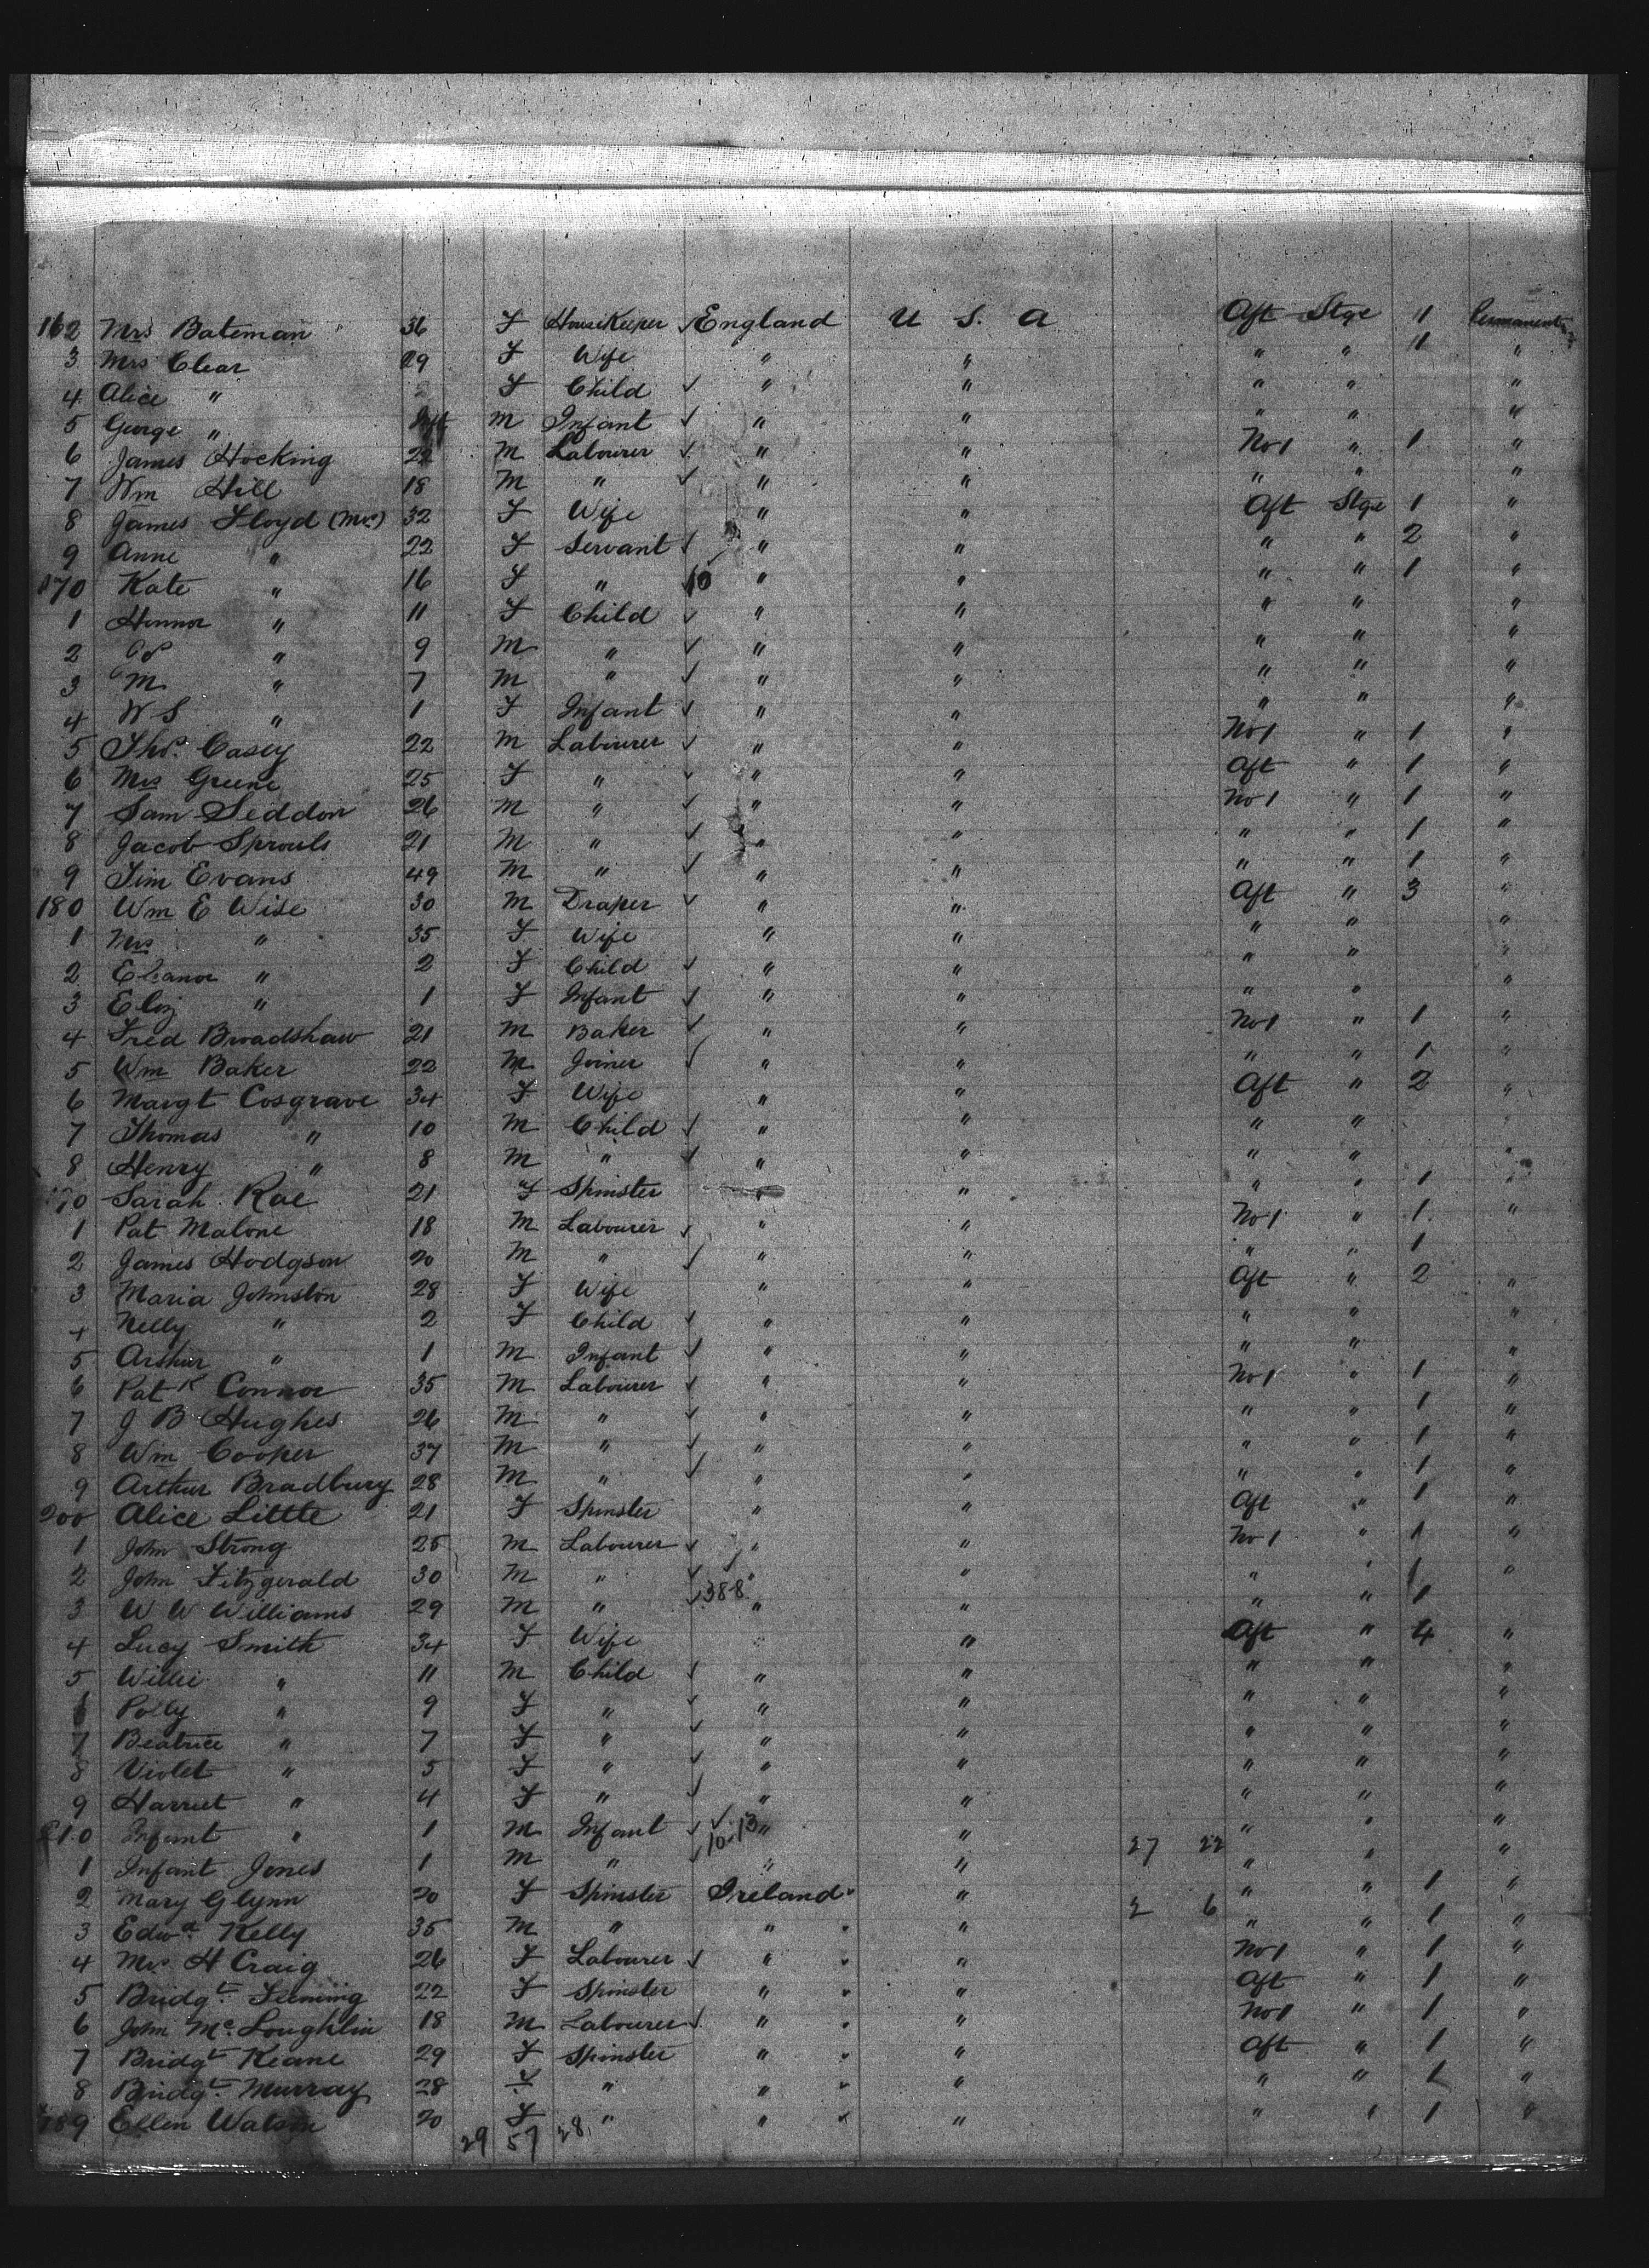 162 Mrs Bateman " 36 F HouseKeeper ✓ England U S. A Aft Stge 1 Permanently
3 Mrs Clear 29 F Wife " " " " 1 "
4 Alice " F Child ✓ " " " " "
5 George " Inft M Infant ✓ " " " " "
6 James Hocking 22 M Labourer ✓ " " No 1 " 1 "
7 Wm Hill 18 M " ✓ " " " " "
8 James Lloyd (Mrs) 32 F Wife " " Aft Stge 1 "
9 Anne " 22 F Servant ✓ " " " " 2 "
170 Kate " 16 F " 10 " " " " 1 "
1 " 11 F Child ✓ " " " " "
2 " 9 M " ✓ " " " " "
3 M " 7 M " ✓ " " " " "
4 W S " 1 F Infant ✓ " " " " "
5 Thos. Casey 22 M Labourer ✓ " " No 1 " 1 "
6 Mrs Greene 25 F " ✓ " " Aft " 1 "
7 Sam Seddon 26 M " ✓ " " No 1 " 1 "
8 Jacob Sprouls 21 M " ✓ " " " " 1 "
9 Jim Evans 49 M " ✓ " " " " 1 "
180 Wm E Wise 30 M Draper ✓ " " Aft " 3 "
1 Mrs " 35 F Wife " " " " "
2 Eleanor " 2 F Child ✓ " " " " "
3 Eliz " 1 F Infant ✓ " " " " "
4 Fred Broadshaw 21 M Baker ✓ " " No 1 " 1 "
5 Wm Baker 22 M Joiner ✓ " " " " 1 "
6 Margt Cosgrave 34 F Wife " " Aft " 2 "
7 Thomas " 10 M Child ✓ " " " "
8 Henry " 8 M " ✓ " " " " "
90 Sarah Rae 21 F Spinster " " " " 1 "
1 Pat Malone 18 M Labourer ✓ " " No 1 " 1 "
2 James Hodgson 20 M " ✓ " " " " 1
3 Maria Johnston 28 F Wife " " Aft " 2 "
4 Nelly " 2 F Child ✓ " " " " "
5 Arthur " 1 M Infant ✓ " " " " "
6 Patk Connor 35 M Labourer ✓ " " No 1 " 1 "
7 J B Hughes 26 M " ✓ " " " " 1 "
8 Wm Cooper 37 M " ✓ " " " " 1 "
9 Arthur Bradbury 28 M " ✓ " " " " 1 "
200 Alice Little 21 F Spinster " " Aft " 1 "
1 John Strong 25 M Labourer ✓ " " No 1 " 1 "
2 John Fitzgerald 30 M " ✓ " " " " 1 "
3 W W Williams 29 M " ✓ 388 " " " " 1
4 Lucy Smith 34 F Wife " " Aft " 4 "
5 Willie " 11 M Child ✓ " " " " "
6 Polly " 9 F " ✓ " " " " "
7 Beatrice " 7 F " ✓ " " " " "
8 Violet " 5 F " ✓ " " " " "
9 Harriet " 4 F " ✓ " " " " "
210 Infant " 1 M Infant ✓ " " " " "
1 Infant Jones 1 M " ✓ 10.13 " " 27 22 " " "
2 Mary Glynn 20 F Spinster Ireland " " " 1 "
3 Edwd. Kelly 35 M " " " 2 6 " " 1 "
4 Mrs H Craig 26 F Labourer ✓ " " No 1 " 1 "
5 Bridgt. 22 F Spinster " " Aft " 1 "
6 John Mc.Loughlin 18 M Labourer ✓ " " No 1 " 1 "
7 Bridgt Keane 29 F Spinster " " Aft " 1 "
8 Bridgt. Murray 28 F " " " " " 1 "
189 Ellen Watson 20 F " " " " " 1 "
29 57 28